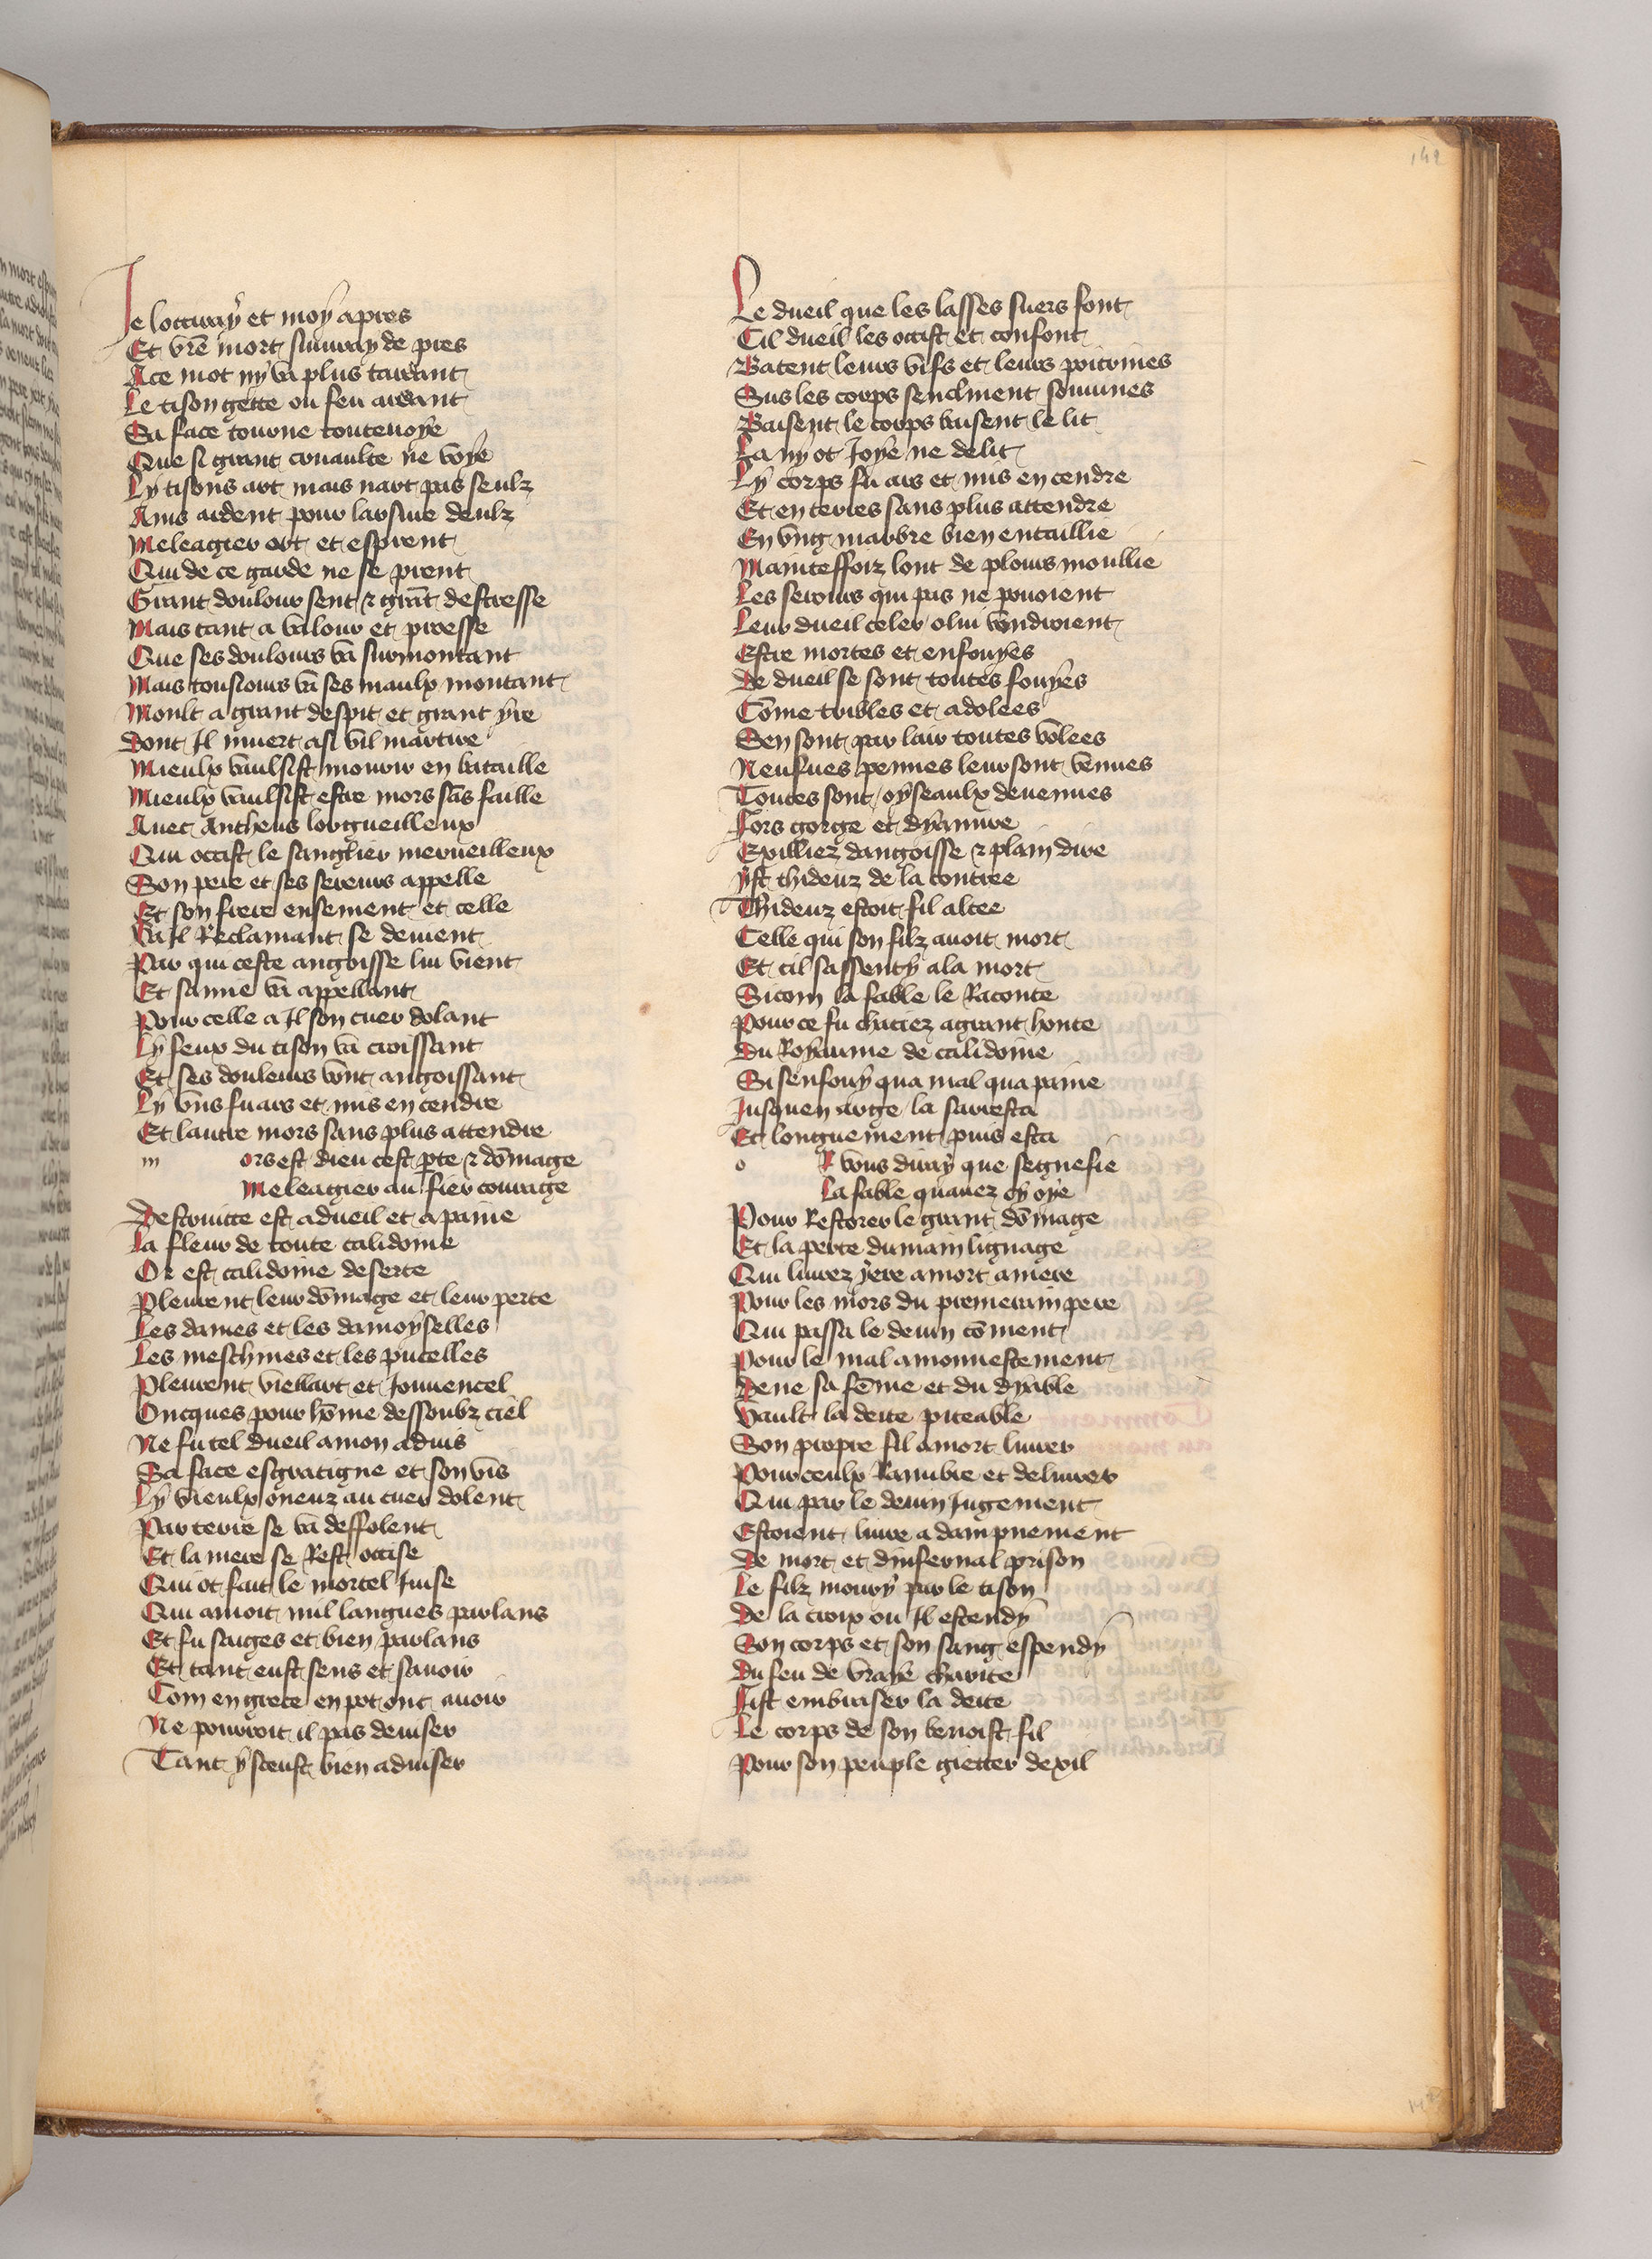 142
Je locciray et moy apres
Et vre mort suiuray de pres
Ace mot ny va plus tardant
Le tison gette ou feu ardant
Sa face tourne toutenoye
Que si grant cruaulte ne voye
Ly tisons art mais nart pas seulz
Ains ardent pour larsure deulz
Meleagier art et esprent
Qui de ce garde ne se prent
Grant doulour sent & grat destresse
Mais tant a valour et proesse
Que ses doulours va surmontant
Mais tousiours va ses maulx montant
Moult a grant despit et grant yre
Dont Il muert a si vil martire
Mieulx vaulsist mourir en bataille
Mieulx vaulsist estre mors sas faille
Auec Antheus lorgueilleux
Qui occist le sanglier merueilleux
Son pere et ses sereurs appelle
Et son frere ensement et celle
Va Il Reclamant se dement
Par qui ceste angoisse lui vient
Et samie va appellant
Pour celle a Il son cuer dolant
Ly feux du tison va croissant
Et ses douleurs vont angoissant
Ly vns fu ars et mis en cendre
Et lautre mors sans plus attendre
m ors est dieu cest pte & domage
Meleagier au fier courage
Destruitte est a dueil et a paine
La fleur de toute calidoine
Or est calidoine deserte
Pleurent leur domage et leur perte
Les dames et les damoyselles
Les meschines et les pucelles
Pleurent viellart et Jouuencel
Oncques pour home dessoubz ciel
Ne fu tel dueil a mon aduis
Sa face esgratigne et son vis
Ly vieulx oneuz au cuer dolent
Par terre se va deffolent
Et la mere se Rest occise
Qui ot fait le mortel Juise
Qui auroit mil langues parlans
Et fu saiges et bien parlans
Et tant eust sens et sauoir
Com en grece en pot ont auoir
Ne pourroit il pas deuiser
Tant y sceust bien aduiser
Le dueil que les lasses suers font
Cil dueil les occist et confont
Batent leurs vifs et leurs poitrines
Sus les corps senclinent souuines
Baisent le corps baisent le lit
La ny ot Joye ne delit
Ly corps fu ars et mis en cendre
Et en terres sans plus attendre
En vng marbre bien entaillie
Mainteffoiz lont de plours moullie
Les serours qui pas ne pouoient
Leur dueil celer olui vondroient
Estre mortes et enfouyes
De dueil se sont toutes fouyes
Come tribles et adolees
Sen sont par lair toutes volees
Neufues pennes leur sont venues
Toutes sont oyseaulx deuenues
Fors gorge et dyanire
Exilliez dangoisse & plain dire
Yst thideuz de la contree
Thideuz estoit fil altee
Celle qui son filz auoit mort
Et cil sassenty ala mort
Sicom la fable le Raconte
Pour ce fu chaciez agrant honte
Du Royaume de calidoine
Si senfouy qua mal qua paine
Jusquen arge la sarresta
Et longuement puis esta
o R vous diray que segnefie
La fable quauez oy oye
Pour Restorer le grant domage
Et la perte dumain lignage
Qui liurez yere a mort amere
Pour les mors du premerain pere
Qui passa le deuin coment
Pour le mal amonnestement
Dene sa feme et du dyable
Vault la deite piteable
Son propre fil a mort liurer
Pour ceulx Raimbre et deliurer
Qui par le deuin Jugement
Estoient liure a dampnement
De mort et dinfernal prison
Le filz moury par le tison
De la croix ou Il estendy
Son corps et son sang espendy
Du feu de vraye charite
Fist embraser la deite
Le corps de son benoist fil
Pour son peuple gietter dexil